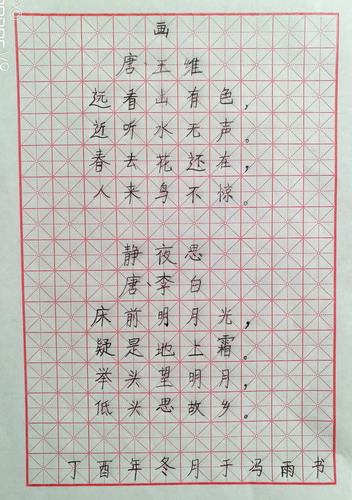 画
唐、王维
远看山有色，
近听水无声。
春去花还在，
人来鸟不惊。
静夜思
唐、李白
床前明月光，
疑是地上霜。
举头望明月，
低头思故乡。
丁酉年冬月于冯雨书